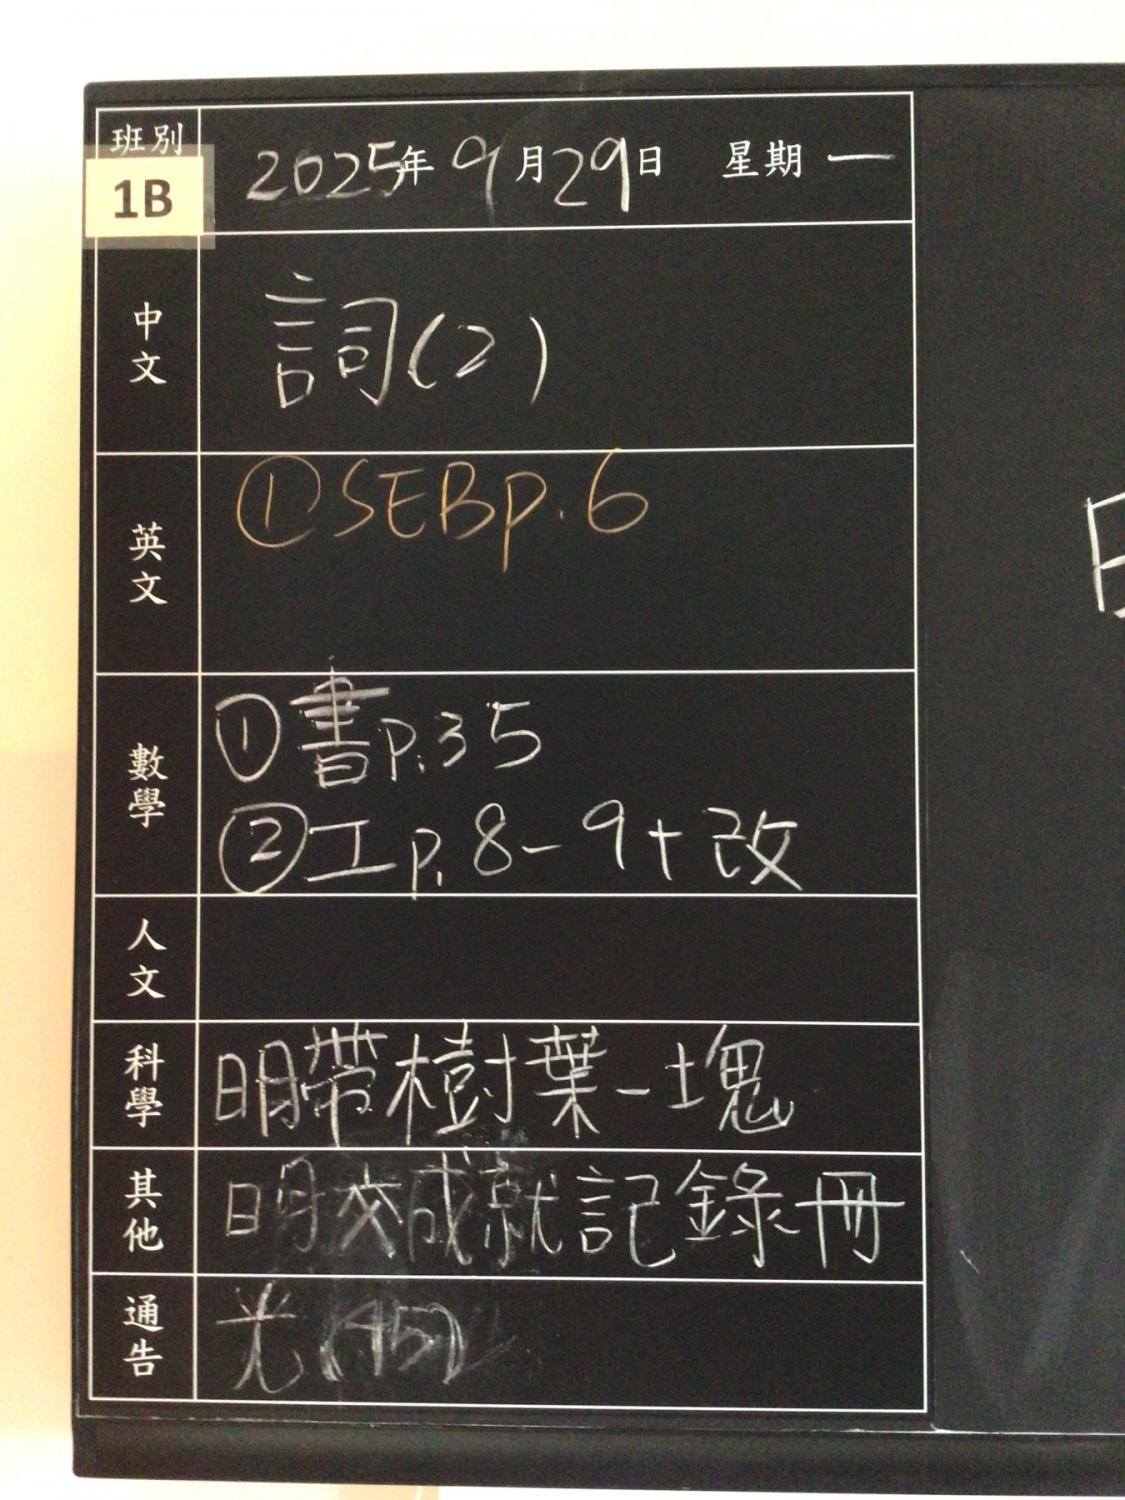 班別
1B
2025年9月29日 星期一
中文
詞(2)
英文
①SEBp.6
數學
①書p.35
②工p.8-9+改
人文
科學
明帶樹葉一塊
其他
明交成就記錄冊
通告
光(145)